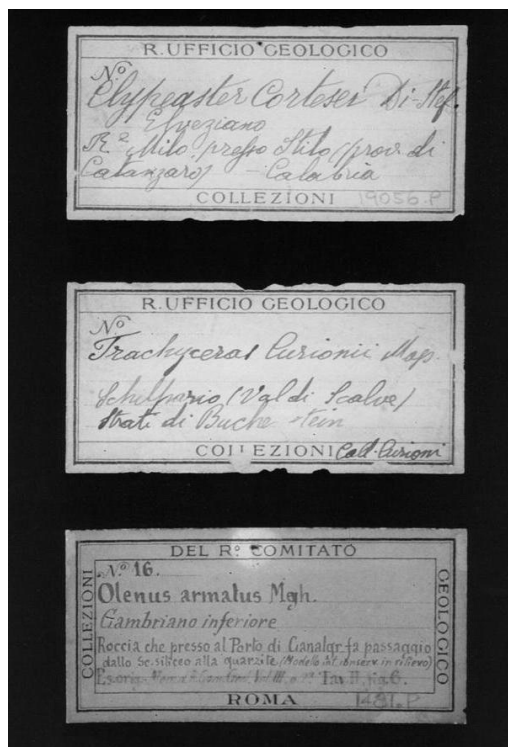 R. UFFICIO GEOLOGICO
No
Clypeaster Cortesei Di-Stef.
Elveziano
R.ª Milo presso Stilo (prov. di
Catanzaro) - Calabria
COLLEZIONI 19056.P
R. UFFICIO GEOLOGICO
No
Trachyceras Curionii Mojs.
Schilpario (Val di Scalve)
Strati di Buchenstein
COLLEZIONI Coll. Curioni
DEL Ro. COMITATO
COLLEZIONI
GEOLOGICO
No 16.
Olenus armatus Mgh.
Cambriano inferiore
Roccia che presso al Porto di Canalgr. fa passaggio
dallo Sc. siliceo alla quarzite (Modello int. conserv. in rilievo)
Es. orig. Tav. II, fig. 6.
ROMA 1481.P